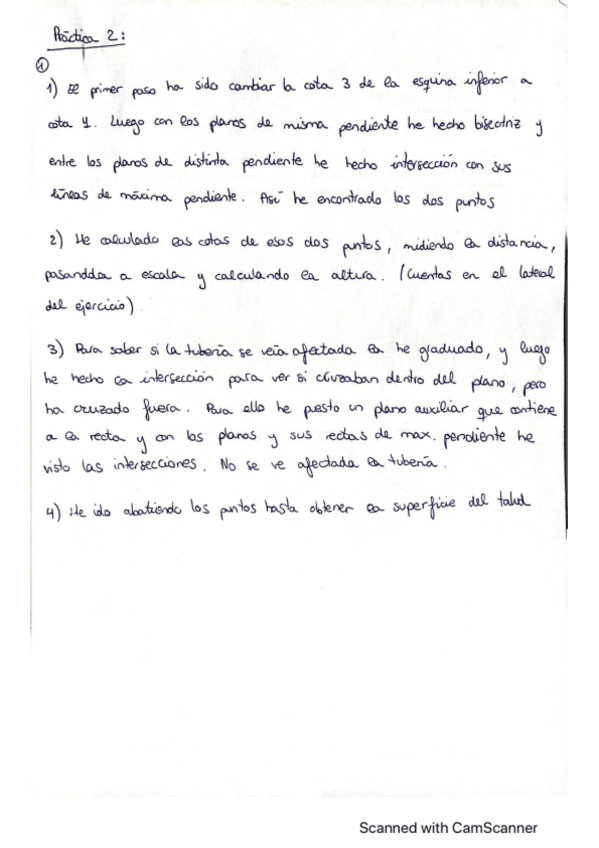 Práctica 2:
①
1) El primer paso ha sido cambiar la cota 3 de la esquina inferior a
cota 4. Luego con los planos de misma pendiente he hecho bisectriz y
entre los planos de distinta pendiente he hecho intersección con sus
líneas de máxima pendiente. Así he encontrado los dos puntos
2) He calculado las cotas de esos dos puntos, midiendo la distancia,
pasandola a escala y calculando la altura. (Cuentas en el lateral
del ejercicio).
3) Para saber si la tubería se veía afectada la he graduado, y luego
he hecho la intersección para ver si cruzaban dentro del plano, pero
ha cruzado fuera. Para ello he puesto un plano auxiliar que contiene
a la recta y con los planos y sus rectas de max. pendiente he
visto las intersecciones. No se ve afectada la tubería.
4) He ido abatiendo los puntos hasta obtener la superficie del talud
Scanned with CamScanner